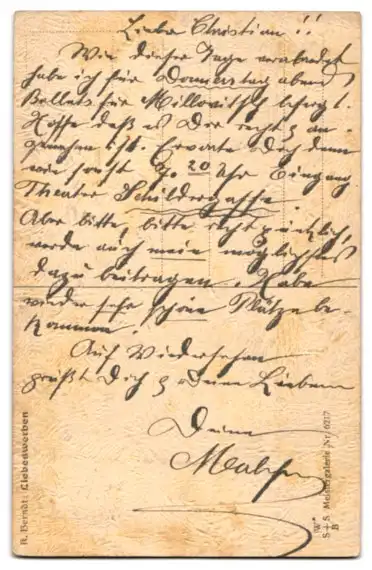 Lieber Christian!!
Wie dieser Tage verabredet
habe ich für Donnerstag abend
Billets für Millowitsch besorgt.
Hoffe daß es Dir recht & an-
genehm ist. Erwarte Dich dann
wie sonst 7.20 Uhr Eingang
Theater Schildergasse.
Aber bitte, bitte recht pünktlich,
werde auch mein möglichstes
dazu beitragen. Habe
wieder sehr schöne Plätze be-
kommen.
Auf Wiedersehen
grüßt Dich & Deine Lieben
Deine
R. Berndt: Liebeswerben
W B
S+S Meistergalerie Nr. 6217